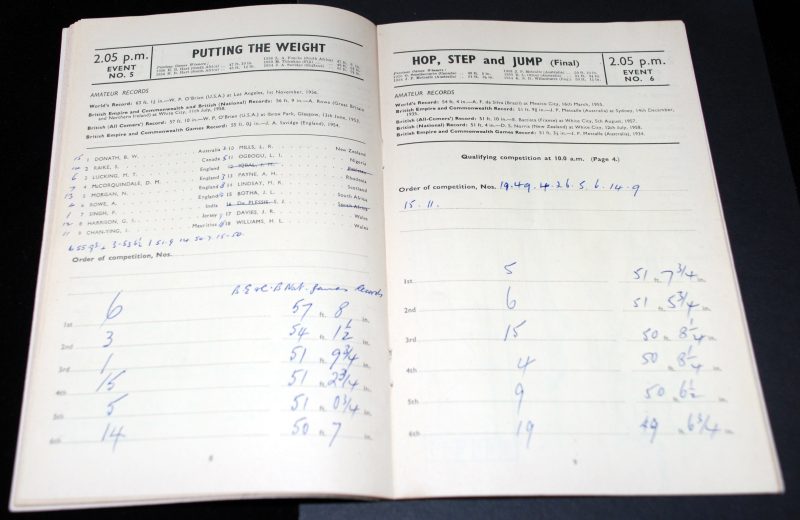 2.05 p.m.
EVENT
NO. 5
PUTTING THE WEIGHT
AMATEUR RECORDS
World's Record: 63 ft. 1½ in.—W. P. O'Brien (U.S.A.) at Los Angeles, 1st November, 1956.
British Empire and Commonwealth and British (National) Record: 56 ft. 9 in.—A. Rowe (Great Britain
and Northern Ireland) at White City, 11th July, 1958.
British (All-Comers) Record: 57 ft. 10 in.—W. P. O'Brien (U.S.A.) at Ibrox Park, Glasgow, 12th June, 1957.
British Empire and Commonwealth Games Record: 55 ft. 0½ in.—J. A. Savidge (England), 1954.
1 DONATH, B. W. Australia
2 RAIKE, S. Canada
3 LUCKING, M. T. England
4 McCORQUINDALE, D. M. England
5 MORGAN, N. England
6 ROWE, A. England
7 SINGH, P. India
8 HARRISON, G. Jersey
9 CHAN-YING, J. Mauritius
10 MILLS, R. New Zealand
11 OGBOGU, L. I. Nigeria
12 IQBAL
13 PAYNE, A. H. Rhodesia
14 LINDSAY, M. R. Scotland
15 BOTHA, J. L. South Africa
16 Du PLESSIS, S. J. South Africa
17 DAVIES, J. R. Wales
18 WILLIAMS, H. L. Wales
Order of competition, Nos.
Records
1st 6 57 ft. 8 in.
2nd 3 54 ft. 1½ in.
3rd 1 51 ft. 9¾ in.
4th 15 51 ft. 2¾ in.
5th 5 51 ft. 0¾ in.
6th 14 50 ft. 7 in.
8
HOP, STEP and JUMP (Final)
2.05 p.m.
EVENT
NO. 6
AMATEUR RECORDS
World's Record: 54 ft. 4 in.—A. F. da Silva (Brazil) at Mexico City, 16th March, 1955.
British Empire and Commonwealth Record: 51 ft. 9½ in.—J. P. Metcalfe (Australia) at Sydney, 14th December,
1935.
British (All-Comers) Record: 51 ft. 10 in.—B. Battista (France) at White City, 5th August, 1957.
British (National) Record: 51 ft. 4 in.—D. S. Norris (New Zealand) at White City, 12th July, 1958.
British Empire and Commonwealth Games Record: 51 ft. 3½ in.—J. P. Metcalfe (Australia), 1934.
Qualifying competition at 10.0 a.m. (Page 4.)
Order of competition, Nos. 19. 49. 4. 26. 5. 6. 14. 9
15. 11.
1st 5 51 ft. 7¾ in.
2nd 6 51 ft. 5¾ in.
3rd 15 50 ft. 8¼ in.
4th 4 50 ft. 8¼ in.
5th 9 50 ft. 6½ in.
6th 19 49 ft. 6¾ in.
9